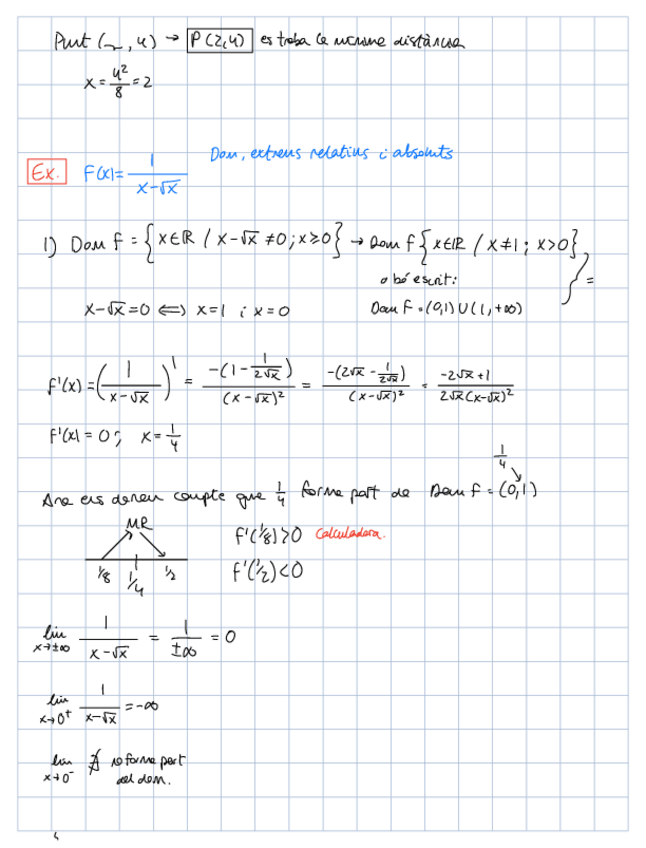 Punt (_, 4) → P(2,4) es troba la mínima distància
x = 4²/8 = 2
Ex. F(x) = 1/(x-√x) Dom, extrems relatius i absoluts
1) Dom f = {x∈ℝ / x-√x ≠0 ; x≥0} → Dom f {x∈ℝ / x≠1 ; x>0}
o bé escrit: } =
x-√x = 0 ⟺ x=1 i x=0 Dom f = (0,1) ∪ (1,+∞)
f'(x) = (1/(x-√x))' = -(1 - 1/(2√x))/(x-√x)² = -(2√x - 1/(2√x))/(x-√x)² = (-2√x+1)/(2√x(x-√x)²)
f'(x) = 0 ; x = 1/4
1/4
Ara ens donem compte que 1/4 forma part de Dom f = (0,1)
MR f'(1/8) > 0 Calculadora.
1/8 1/4 1/2 f'(1/2) < 0
lim x→±∞ 1/(x-√x) = 1/±∞ = 0
lim x→0⁺ 1/(x-√x) = -∞
lim x→0⁻ ∄ no forma part
del dom.